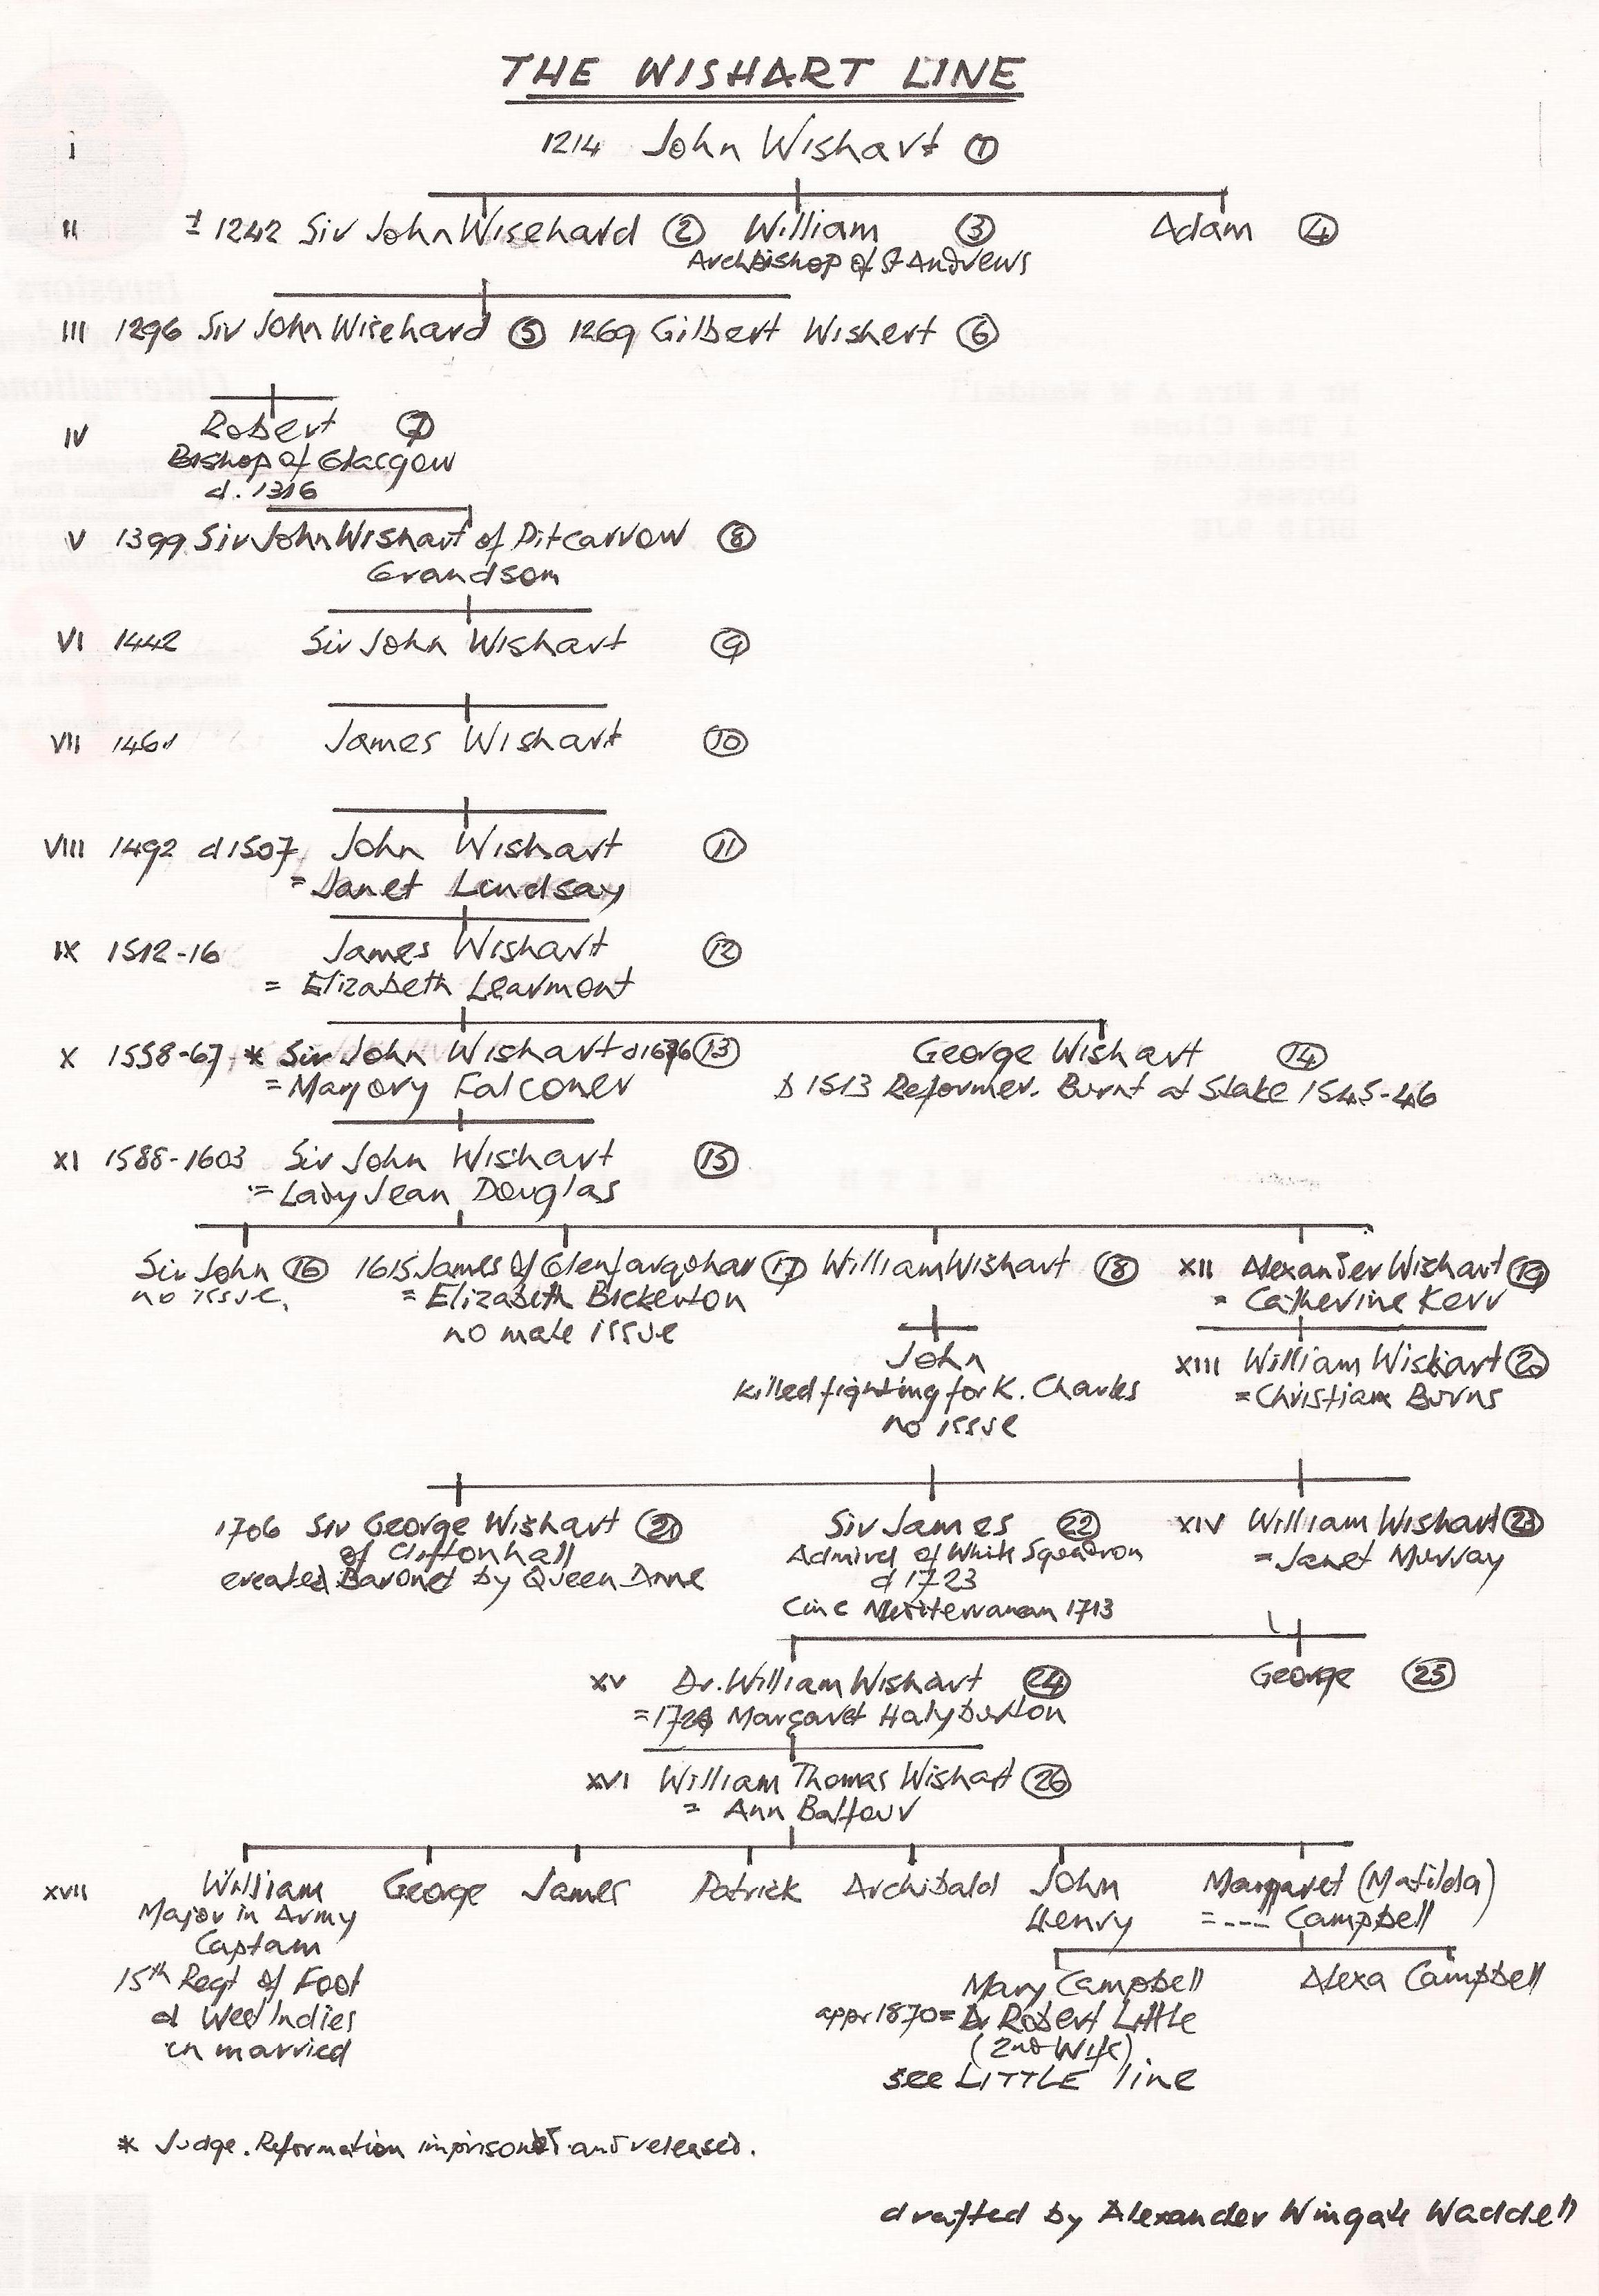 THE WISHART LINE
I 1214 John Wishart 1
II ± 1242 Sir John Wisehard 2 William 3 Adam 4
Archbishop of St Andrews
III 1296 Sir John Wisehard 5 1269 Gilbert Wishert 6
IV Robert 7
Bishop of Glasgow
d. 1316
V 1399 Sir John Wishart of Pitcarrow 8
Grandson
VI 1442 Sir John Wishart 9
VII James Wishart 10
VIII 1492 d 1507 John Wishart 11
= Janet Lindsay
IX 1512-16 James Wishart 12
= Elizabeth Learmont
X 1558-67 * Sir John Wishart 13 George Wishart 14
= Marjory Falconer b 1513 Reformer. Burnt at Stake 1545-46
XI 1588-1603 Sir John Wishart 15
= Lady Jean Douglas
Sir John 16 1615 James of Glenfarqohar 17 William Wishart 18 XII Alexander Wishart 19
no issue. = Elizabeth Bickerton = Catherine Kerr
no male issue
John XIII William Wishart 20
killed fighting for K. Charles = Christian Burns
no issue
1706 Sir George Wishart 21 Sir James 22 XIV William Wishart 23
of Cliftonhall Admiral of White Squadron = Janet Murray
created Baronet by Queen Anne d 1723
C in C Mediterranean 1713
XV Dr. William Wishart 24 George 25
= Margaret Halyburton
XVI William Thomas Wishart 26
= Ann Balfour
XVII William George James Patrick Archibald John Margaret (Matilda)
Major in Army Henry = --- Campbell
Captain
15th Regt of Foot Mary Campbell Alexa Campbell
d West Indies appr 1870 = Dr Robert Little
un married (2nd Wife)
see LITTLE line
* Judge. Reformation imprisoned and released.
drafted by Alexander Wingate Waddell